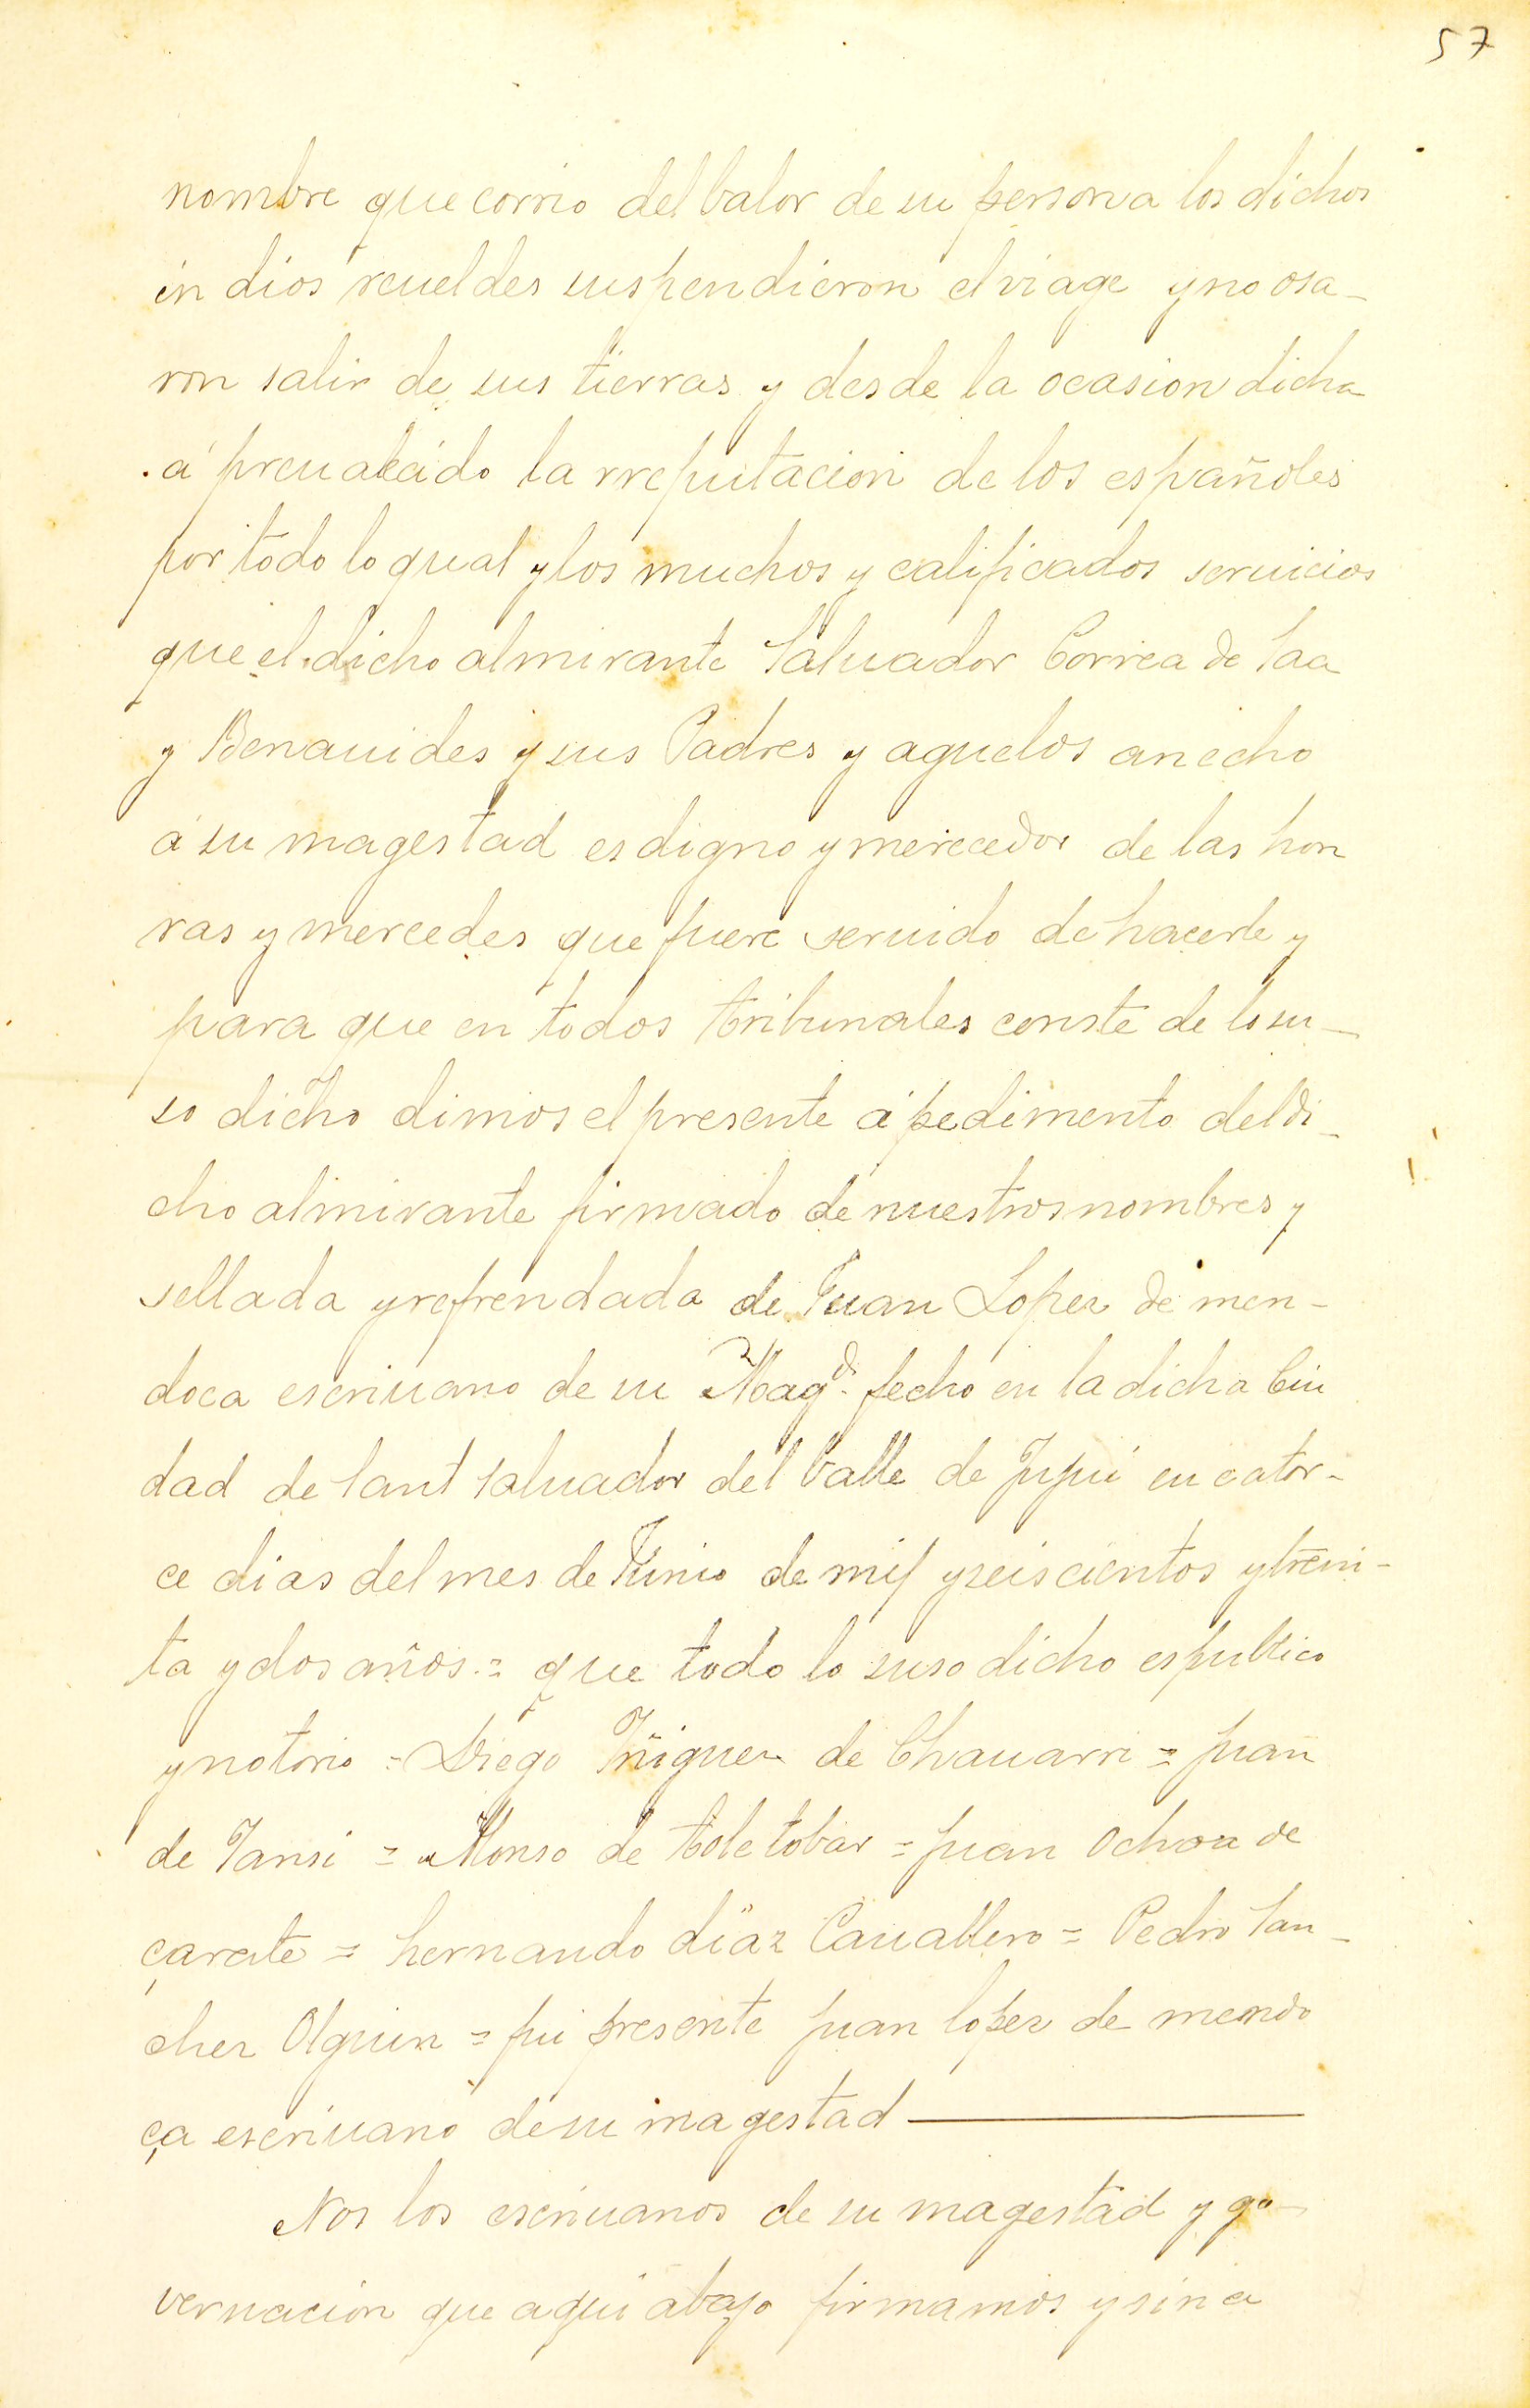 57
nombre que corrio del balor de su persona los dichos
in dios reueldes suspendieron el viage y no osa-
ron salir de sus tierras y desde la ocasion dicha
á preualecido la rreputacion de los españoles
por todo lo qual y los muchos y calificados seruicios
que el dicho almirante Saluador Correa de Saa
y Benauides y sus Padres y aguelos an echo
á su magestad es digno y merecedor de las hon
ras y mercedes que fuere seruido de hacerle y
para que en todos tribunales conste de lo su-
so dicho dimos el presente á pedimento del di-
cho almirante firmado de nuestros nombres y
sellada y refrendada de Juan Lopez de men-
doca escriuano de su Magd. fecho en la dicha Ciu
dad de Sant Saluador del Valle de Jujui en cator-
ce dias del mes de Junio de mil y seiscientos y trein-
ta y dos años.= que todo lo suso dicho es publico
y notorio = Diego Iñiguez de Chauarri = Juan
de Iansi = Alonso de tole tobar = Juan Ochoa de
çarate = hernando diaz Cauallero = Pedro San-
chez Olguin = fui presente Juan lopez de mendo
ça escriuano de su magestad
Nos los escriuanos de su magestad y go-
vernacion que aqui abajo firmamos y sina